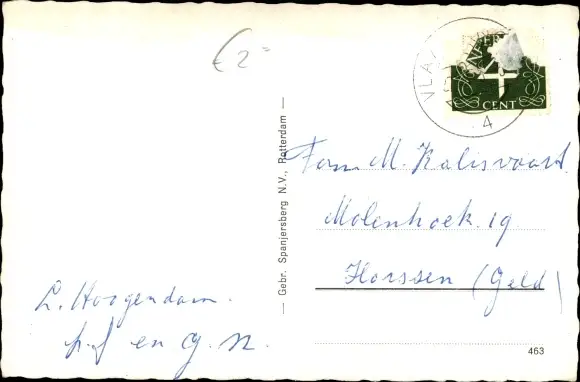 € 2 =
VLA
CENT
4
Gebr. Spanjersberg N.V., Rotterdam
Fam M. Kalisvaart
Molenhoek 19
Horssen (Geld)
L. Hoogendam.
en G. N.
463